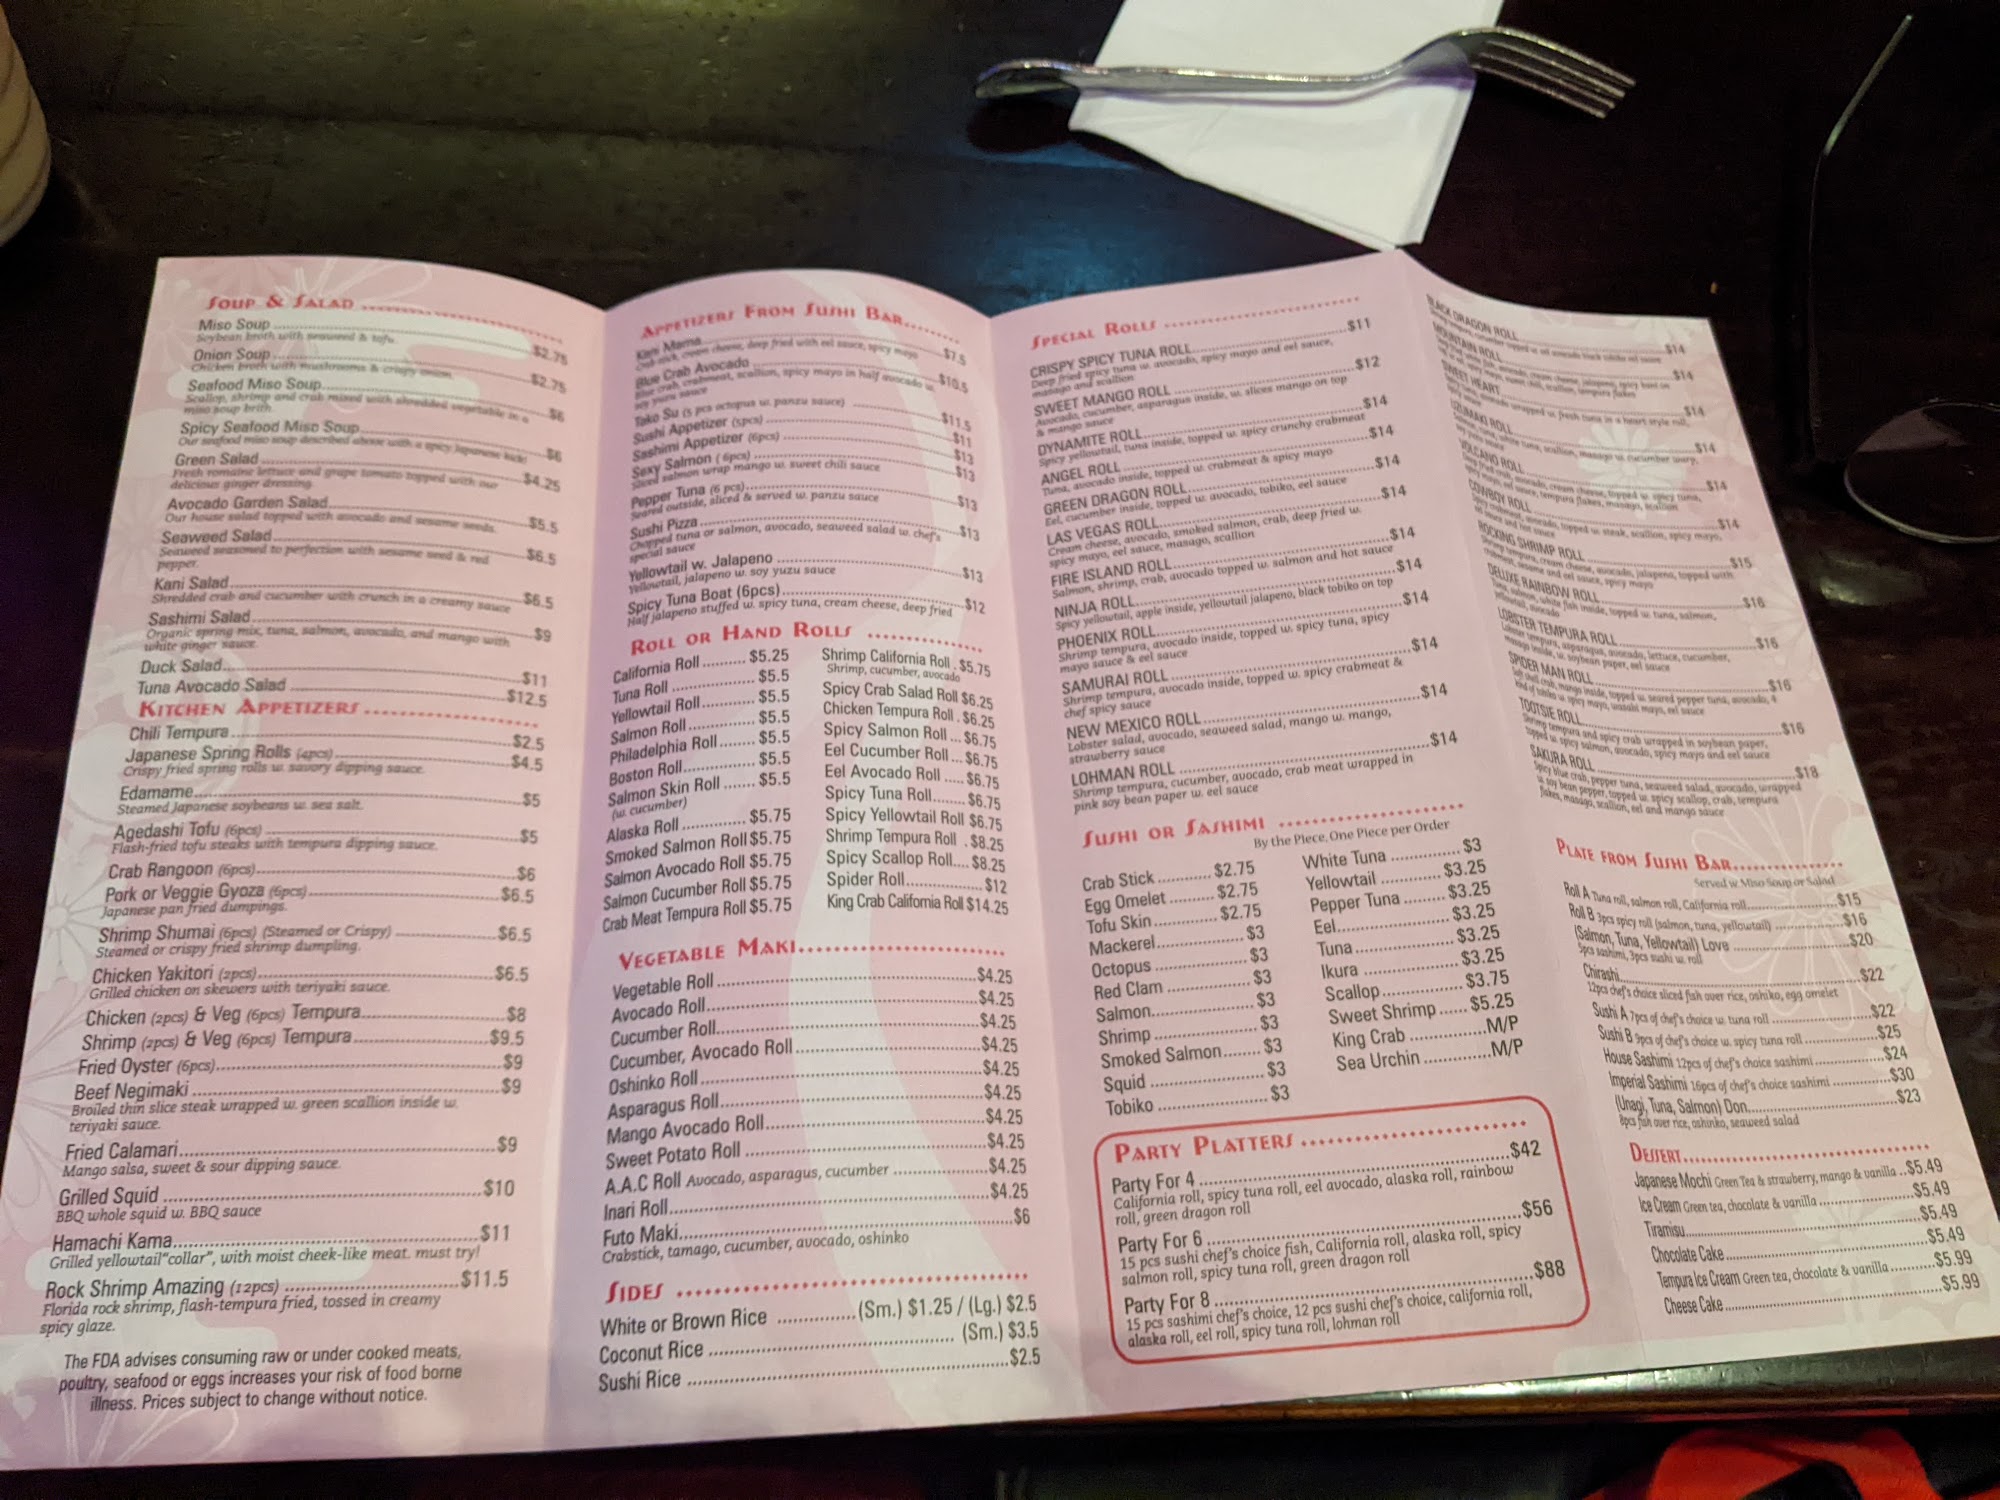 SOUP & SALAD
Miso Soup $2.75
Soybean broth with seaweed & tofu.
Onion Soup $2.75
Chicken broth with mushrooms & crispy onion.
Seafood Miso Soup $6
Scallop, shrimp and crab mixed with shredded vegetable in a
miso soup brith.
Spicy Seafood Miso Soup $6
Our seafood miso soup described above with a spicy Japanese kick!
Green Salad $4.25
Fresh romaine lettuce and grape tomato topped with our
delicious ginger dressing.
Avocado Garden Salad $5.5
Our house salad topped with avocado and sesame seeds.
Seaweed Salad $6.5
Seaweed seasoned to perfection with sesame seed & red
pepper.
Kani Salad $6.5
Shredded crab and cucumber with crunch in a creamy sauce
Sashimi Salad $9
Organic spring mix, tuna, salmon, avocado, and mango with
white ginger sauce.
Duck Salad $11
Tuna Avocado Salad $12.5
KITCHEN APPETIZERS
Chili Tempura $2.5
Japanese Spring Rolls (4pcs) $4.5
Crispy fried spring rolls w. savory dipping sauce.
Edamame $5
Steamed Japanese soybeans w. sea salt.
Agedashi Tofu (6pcs) $5
Flash-fried tofu steaks with tempura dipping sauce.
Crab Rangoon (6pcs) $6
Pork or Veggie Gyoza (6pcs) $6.5
Japanese pan fried dumpings.
Shrimp Shumai (6pcs) (Steamed or Crispy) $6.5
Steamed or crispy fried shrimp dumpling.
Chicken Yakitori (2pcs) $6.5
Grilled chicken on skewers with teriyaki sauce.
Chicken (2pcs) & Veg (6pcs) Tempura $8
Shrimp (2pcs) & Veg (6pcs) Tempura $9.5
Fried Oyster (6pcs) $9
Beef Negimaki $9
Broiled thin slice steak wrapped w. green scallion inside w.
teriyaki sauce.
Fried Calamari $9
Mango salsa, sweet & sour dipping sauce.
Grilled Squid $10
BBQ whole squid w. BBQ sauce
Hamachi Kama $11
Grilled yellowtail"collar", with moist cheek-like meat. must try!
Rock Shrimp Amazing (12pcs) $11.5
Florida rock shrimp, flash-tempura fried, tossed in creamy
spicy glaze.
The FDA advises consuming raw or under cooked meats,
poultry, seafood or eggs increases your risk of food borne
illness. Prices subject to change without notice.
APPETIZERS FROM SUSHI BAR
Kani Mama $7.5
Crab stick, cream cheese, deep fried with eel sauce, spicy mayo
Blue Crab Avocado $10.5
Blue crab, crabmeat, scallion, spicy mayo in half avocado w.
soy yuzu sauce
Tako Su (5 pcs octopus w. panzu sauce) $11.5
Sushi Appetizer (5pcs) $11
Sashimi Appetizer (6pcs) $13
Sexy Salmon (6pcs) $13
Sliced salmon wrap mango w. sweet chili sauce
Pepper Tuna (6 pcs) $13
Seared outside, sliced & served w. panzu sauce
Sushi Pizza $13
Chopped tuna or salmon, avocado, seaweed salad w. chef's
special sauce
Yellowtail w. Jalapeno $13
Yellowtail, jalapeno w. soy yuzu sauce
Spicy Tuna Boat (6pcs) $12
Half jalapeno stuffed w. spicy tuna, cream cheese, deep fried
ROLL OR HAND ROLLS
California Roll $5.25
Tuna Roll $5.5
Yellowtail Roll $5.5
Salmon Roll $5.5
Philadelphia Roll $5.5
Boston Roll $5.5
Salmon Skin Roll $5.5
(w. cucumber)
Alaska Roll $5.75
Smoked Salmon Roll $5.75
Salmon Avocado Roll $5.75
Salmon Cucumber Roll $5.75
Crab Meat Tempura Roll $5.75
Shrimp California Roll $5.75
Shrimp, cucumber, avocado
Spicy Crab Salad Roll $6.25
Chicken Tempura Roll $6.25
Spicy Salmon Roll $6.75
Eel Cucumber Roll $6.75
Eel Avocado Roll $6.75
Spicy Tuna Roll $6.75
Spicy Yellowtail Roll $6.75
Shrimp Tempura Roll $8.25
Spicy Scallop Roll $8.25
Spider Roll $12
King Crab California Roll $14.25
VEGETABLE MAKI
Vegetable Roll $4.25
Avocado Roll $4.25
Cucumber Roll $4.25
Cucumber, Avocado Roll $4.25
Oshinko Roll $4.25
Asparagus Roll $4.25
Mango Avocado Roll $4.25
Sweet Potato Roll $4.25
A.A.C Roll Avocado, asparagus, cucumber $4.25
Inari Roll $4.25
Futo Maki $6
Crabstick, tamago, cucumber, avocado, oshinko
SIDES
White or Brown Rice (Sm.) $1.25 / (Lg.) $2.5
Coconut Rice (Sm.) $3.5
Sushi Rice $2.5
SPECIAL ROLLS
CRISPY SPICY TUNA ROLL $11
Deep fried spicy tuna w. avocado, spicy mayo and eel sauce,
masago and scallion
SWEET MANGO ROLL $12
Avocado, cucumber, asparagus inside, w. slices mango on top
& mango sauce
DYNAMITE ROLL $14
Spicy yellowtail, tuna inside, topped w. spicy crunchy crabmeat
ANGEL ROLL $14
Tuna, avocado inside, topped w. crabmeat & spicy mayo
GREEN DRAGON ROLL $14
Eel, cucumber inside, topped w. avocado, tobiko, eel sauce
LAS VEGAS ROLL $14
Cream cheese, avocado, smoked salmon, crab, deep fried w.
spicy mayo, eel sauce, masago, scallion
FIRE ISLAND ROLL $14
Salmon, shrimp, crab, avocado topped w. salmon and hot sauce
NINJA ROLL $14
Spicy yellowtail, apple inside, yellowtail jalapeno, black tobiko on top
PHOENIX ROLL $14
Shrimp tempura, avocado inside, topped w. spicy tuna, spicy
mayo sauce & eel sauce
SAMURAI ROLL $14
Shrimp tempura, avocado inside, topped w. spicy crabmeat &
chef spicy sauce
NEW MEXICO ROLL $14
Lobster salad, avocado, seaweed salad, mango w. mango,
strawberry sauce
LOHMAN ROLL $14
Shrimp tempura, cucumber, avocado, crab meat wrapped in
pink soy bean paper w. eel sauce
SUSHI OR SASHIMI
By the Piece, One Piece per Order
Crab Stick $2.75
Egg Omelet $2.75
Tofu Skin $2.75
Mackerel $3
Octopus $3
Red Clam $3
Salmon $3
Shrimp $3
Smoked Salmon $3
Squid $3
Tobiko $3
White Tuna $3
Yellowtail $3.25
Pepper Tuna $3.25
Eel $3.25
Tuna $3.25
Ikura $3.25
Scallop $3.75
Sweet Shrimp $5.25
King Crab M/P
Sea Urchin M/P
PARTY PLATTERS
Party For 4 $42
California roll, spicy tuna roll, eel avocado, alaska roll, rainbow
roll, green dragon roll
Party For 6 $56
15 pcs sushi chef's choice fish, California roll, alaska roll, spicy
salmon roll, spicy tuna roll, green dragon roll
Party For 8 $88
15 pcs sashimi chef's choice, 12 pcs sushi chef's choice, california roll,
alaska roll, eel roll, spicy tuna roll, lohman roll
BLACK DRAGON ROLL $14
MOUNTAIN ROLL $14
SWEET HEART $14
avocado wrapped w. fresh tuna in a heart style roll,
UZUMAKI ROLL $14
VOLCANO ROLL $14
COWBOY ROLL $14
Spicy crabmeat, avocado, topped w. steak, scallion, spicy mayo,
ROCKING SHRIMP ROLL $15
Shrimp tempura, cream cheese, avocado, jalapeno, topped with
crabmeat, sesame and eel sauce, spicy mayo
DELUXE RAINBOW ROLL $16
Tuna, salmon, white fish inside, topped w. tuna, salmon,
yellowtail, avocado
LOBSTER TEMPURA ROLL $16
Lobster tempura, asparagus, avocado, lettuce, cucumber,
masago inside, w. soybean paper, eel sauce
SPIDER MAN ROLL $16
Soft shell crab, mango inside, topped w. seared pepper tuna, avocado, 4
kind of tobiko w. spicy mayo, wasabi mayo, eel sauce
TOOTSIE ROLL $16
Shrimp tempura and spicy crab wrapped in soybean paper,
topped w. spicy salmon, avocado, spicy mayo and eel sauce
SAKURA ROLL $18
Spicy blue crab, pepper tuna, seaweed salad, avocado, wrapped
w. soy bean pepper, topped w. spicy scallop, crab, tempura
flakes, masago, scallion, eel and mango sauce
PLATE FROM SUSHI BAR
Served w. Miso Soup or Salad
Roll A Tuna roll, salmon roll, California roll $15
Roll B 3pcs spicy roll (salmon, tuna, yellowtail) $16
(Salmon, Tuna, Yellowtail) Love $20
5pcs sashimi, 3pcs sushi w. roll
Chirashi $22
12pcs chef's choice sliced fish over rice, oshiko, egg omelet
Sushi A 7pcs of chef's choice w. tuna roll $22
Sushi B 9pcs of chef's choice w. spicy tuna roll $25
House Sashimi 12pcs of chef's choice sashimi $24
Imperial Sashimi 16pcs of chef's choice sashimi $30
(Unagi, Tuna, Salmon) Don $23
8pcs fish over rice, oshinko, seaweed salad
DESSERT
Japanese Mochi Green Tea & strawberry, mango & vanilla $5.49
Ice Cream Green tea, chocolate & vanilla $5.49
Tiramisu $5.49
Chocolate Cake $5.49
Tempura Ice Cream Green tea, chocolate & vanilla $5.99
Cheese Cake $5.99